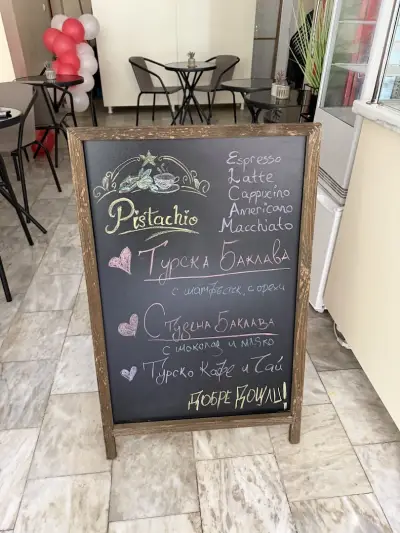 Pistachio
Espresso
Latte
Cappucino
Americano
Macchiato
Турска Баклава
с шамфъстък, с орехи
Студена Баклава
с шоколад и мляко
Турско Кафе и Чай
Добре Дошли!